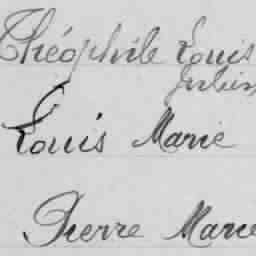 Théophile Louis
Julien
Louis Marie
Pierre Marie